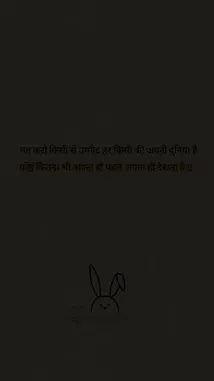 मत करो किसी से उम्मीद हर किसी की अपनी दुनिया है
कोई कितना भी अपना हो पहले अपना ही देखता है।